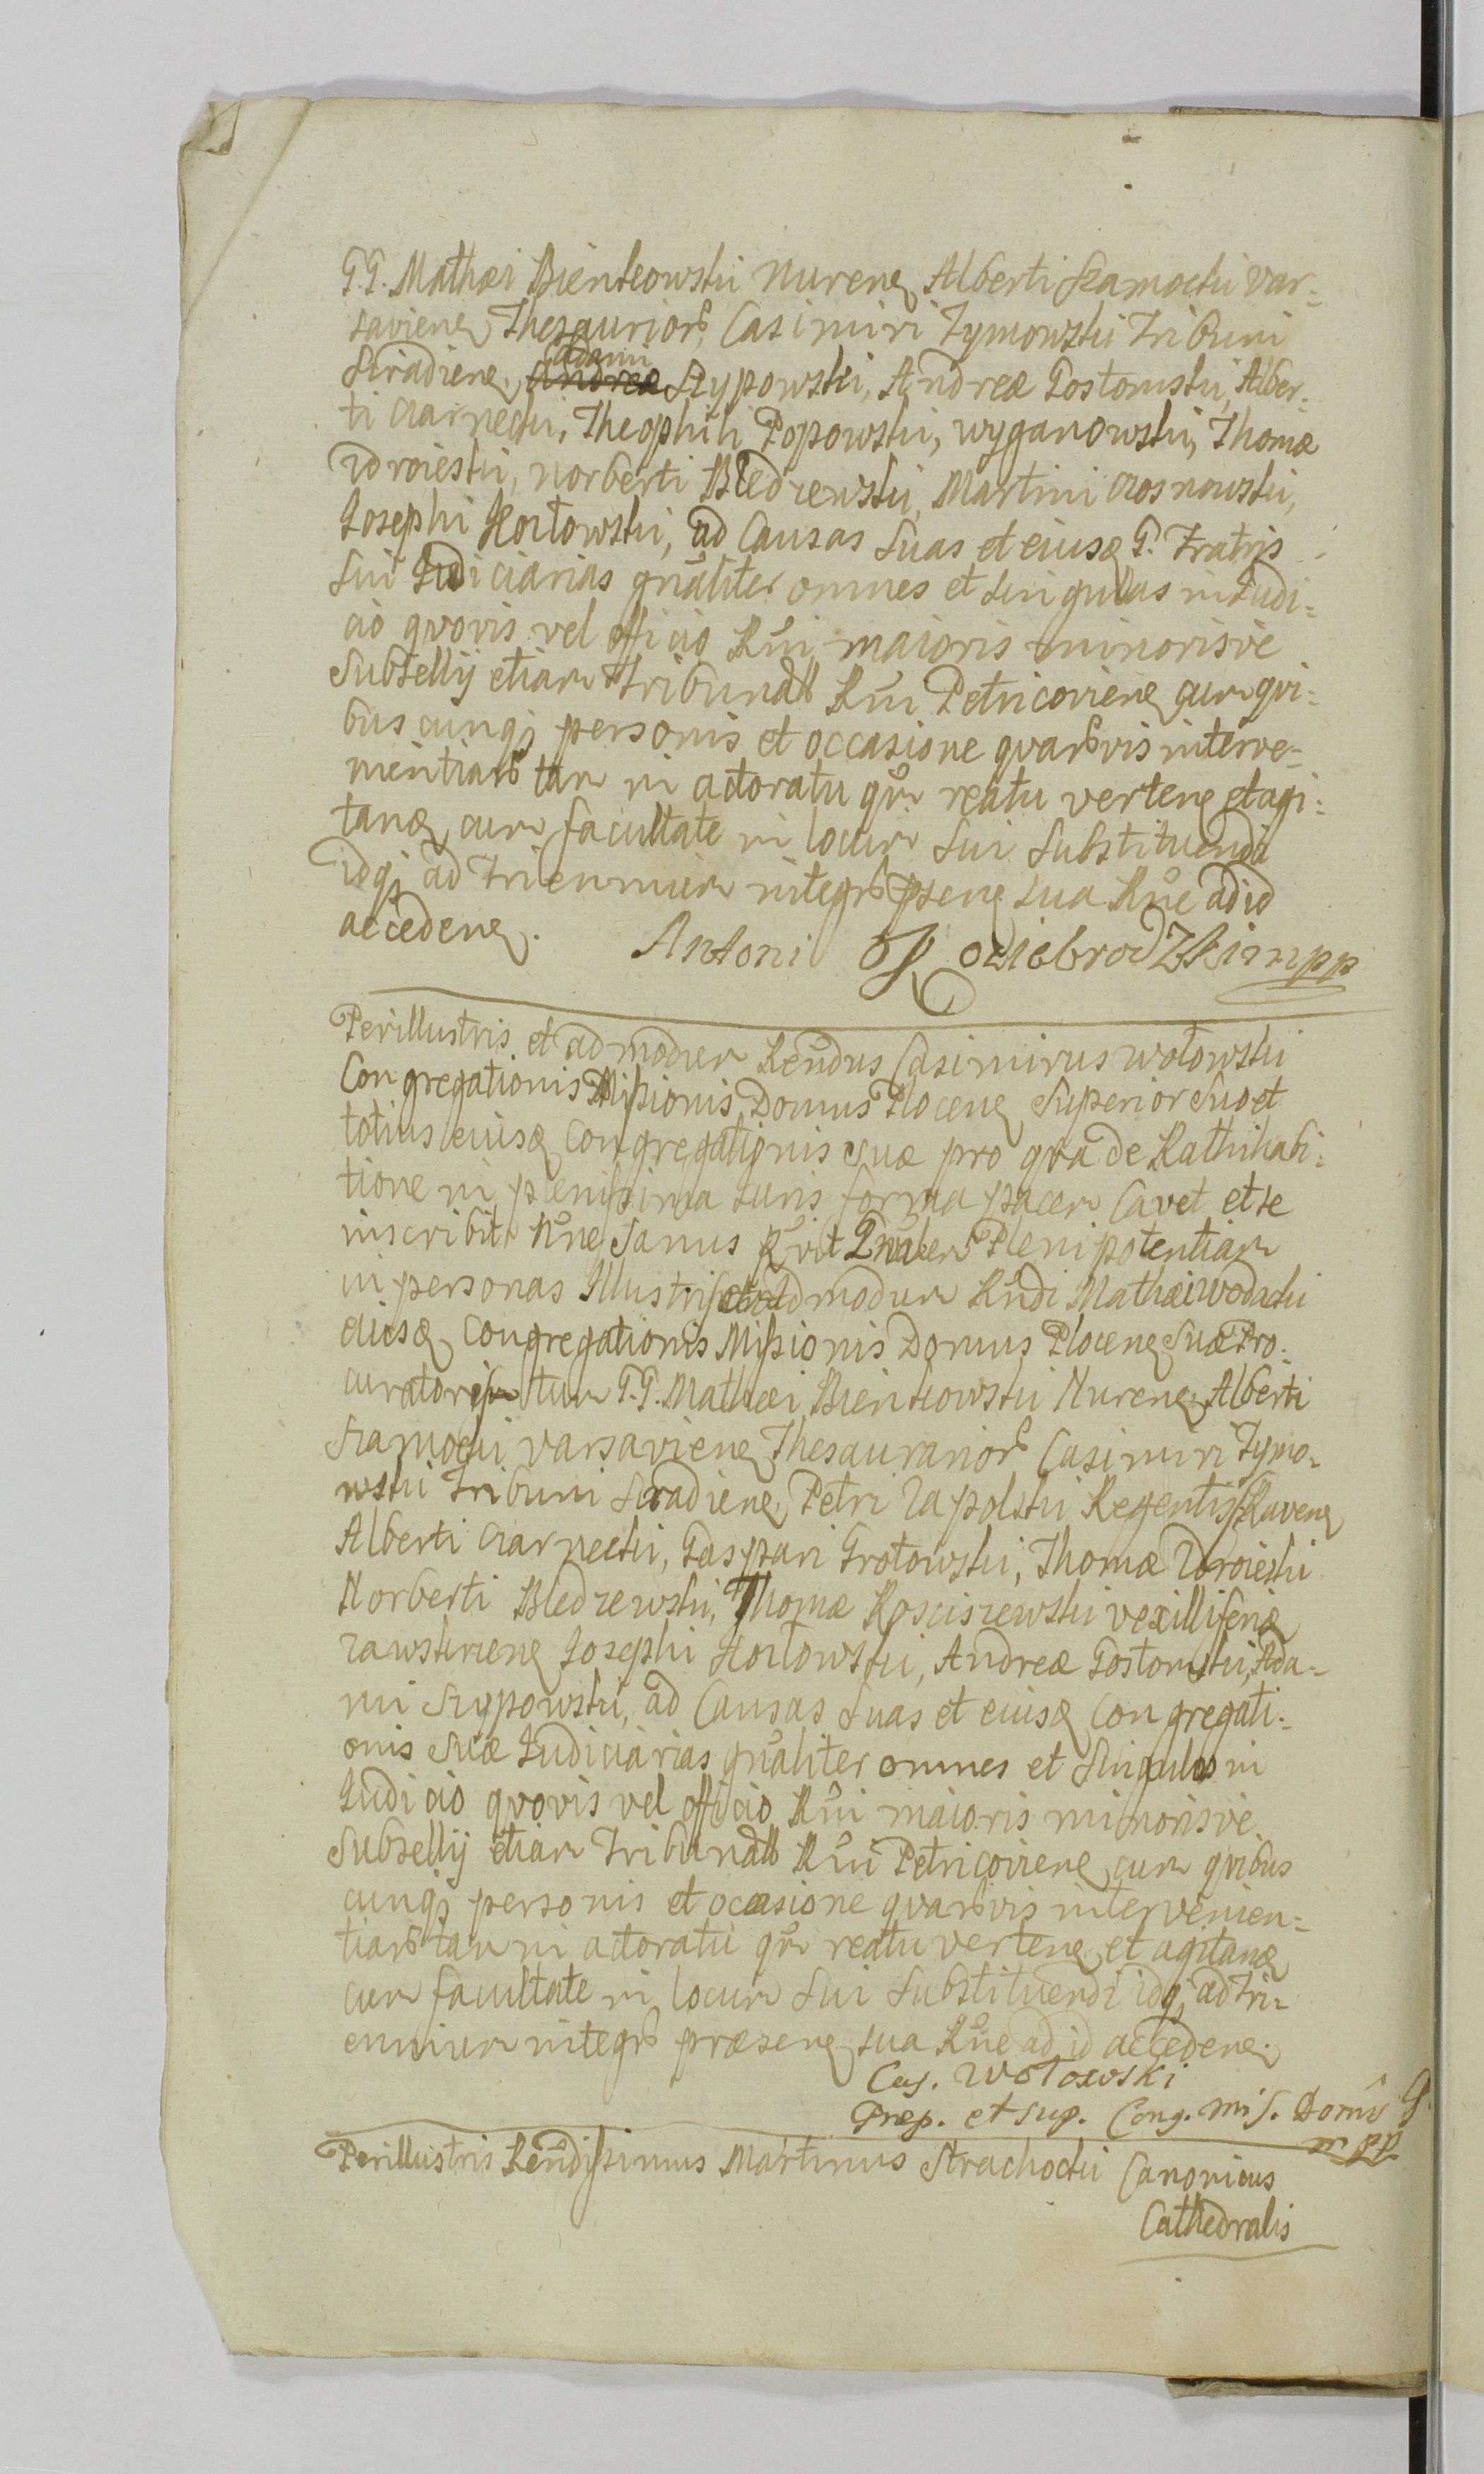 G.G. Mathæi Bienkowski Nurens, Alberti Szamocki Var=
saviens, Thesaurior, Casimiri Tymowski Tribuni
Siradiens, Adami Szypowski, Andreæ Gostomski, Alber=
ti Czarnecki, Theophili Popowski, Wyganowski, Thomæ
Zdroieski, Norberti Bledzewski, Martini Czosnowski,
Josephi Kozłowski, ad Causas Suas et eiusd G. Fratris
Sui Judiciarias gnaliter omnes et singulas in Judi=
cio qvovis vel officio Rni maioris minorisve
Subsellij etiam Tribunalis Rni Petricoviens cum qvi=
buscunq personis et occasione qvarvis interve=
nientiar tam in actoratu qm reatu vertens et agi=
tand, cum facultate in locum Sui Substituendi
idq ad Triennium integr psens sua Rne ad id
accedens.
Antoni Podziebrodzki mpp
Perillustris et admodum Rendus Casimirus Wołowski
Congregationis Missionis Domus Plocens Superior Suo et
totius eiusd Congregationis Suæ pro qva de Rathihabi=
tione in plenissima Iuris forma pacem Cavet et se
inscribit Nne Sanus Plenipotentiam
in personas Illustris et Admodum Rndi Mathæi Wodacki
eiusd Congregationis Missionis Domus Plocens Suæ Pro=
curatoris tum G.G. Mathæi Bienkowski Nurens, Alberti
Szamocki Varsaviens Thesaurarior Casimiri Tymo=
wski Tribuni Siradiens, Petri Zapolski Regentis Ravens
Alberti Czarnecki, Gaspari Grotowski, Thomæ Zdroieski
Norberti Bledzewski, Thomæ Kosciszewski Vexilliferid
Zawskrzens Josephi Kozłowski, Andreæ Gostomski, Ada=
mi Szypowski, ad Causas Suas et eiusd Congregati=
onis Suæ Judiciarias gnaliter omnes et Singulas in
Judicio qvovis vel officio Rni maioris minorisve
Subsellij etiam Tribunalis Rni Petricoviens cum qvibus
cunq personis et occasione qvarvis intervenien=
tiar tam in actoratu qm reatu vertens et agitand
cum facultate in locum Sui Substituendi idq ad Tri=
ennium integr præsens sua Rne ad id accedens.
Cas. Wołowski
Præp. et Sup. Cong. Mis. Domûs P
mpp
Perillustris Rendissimus Martinus Strachocki Canonicus
Cathedralis